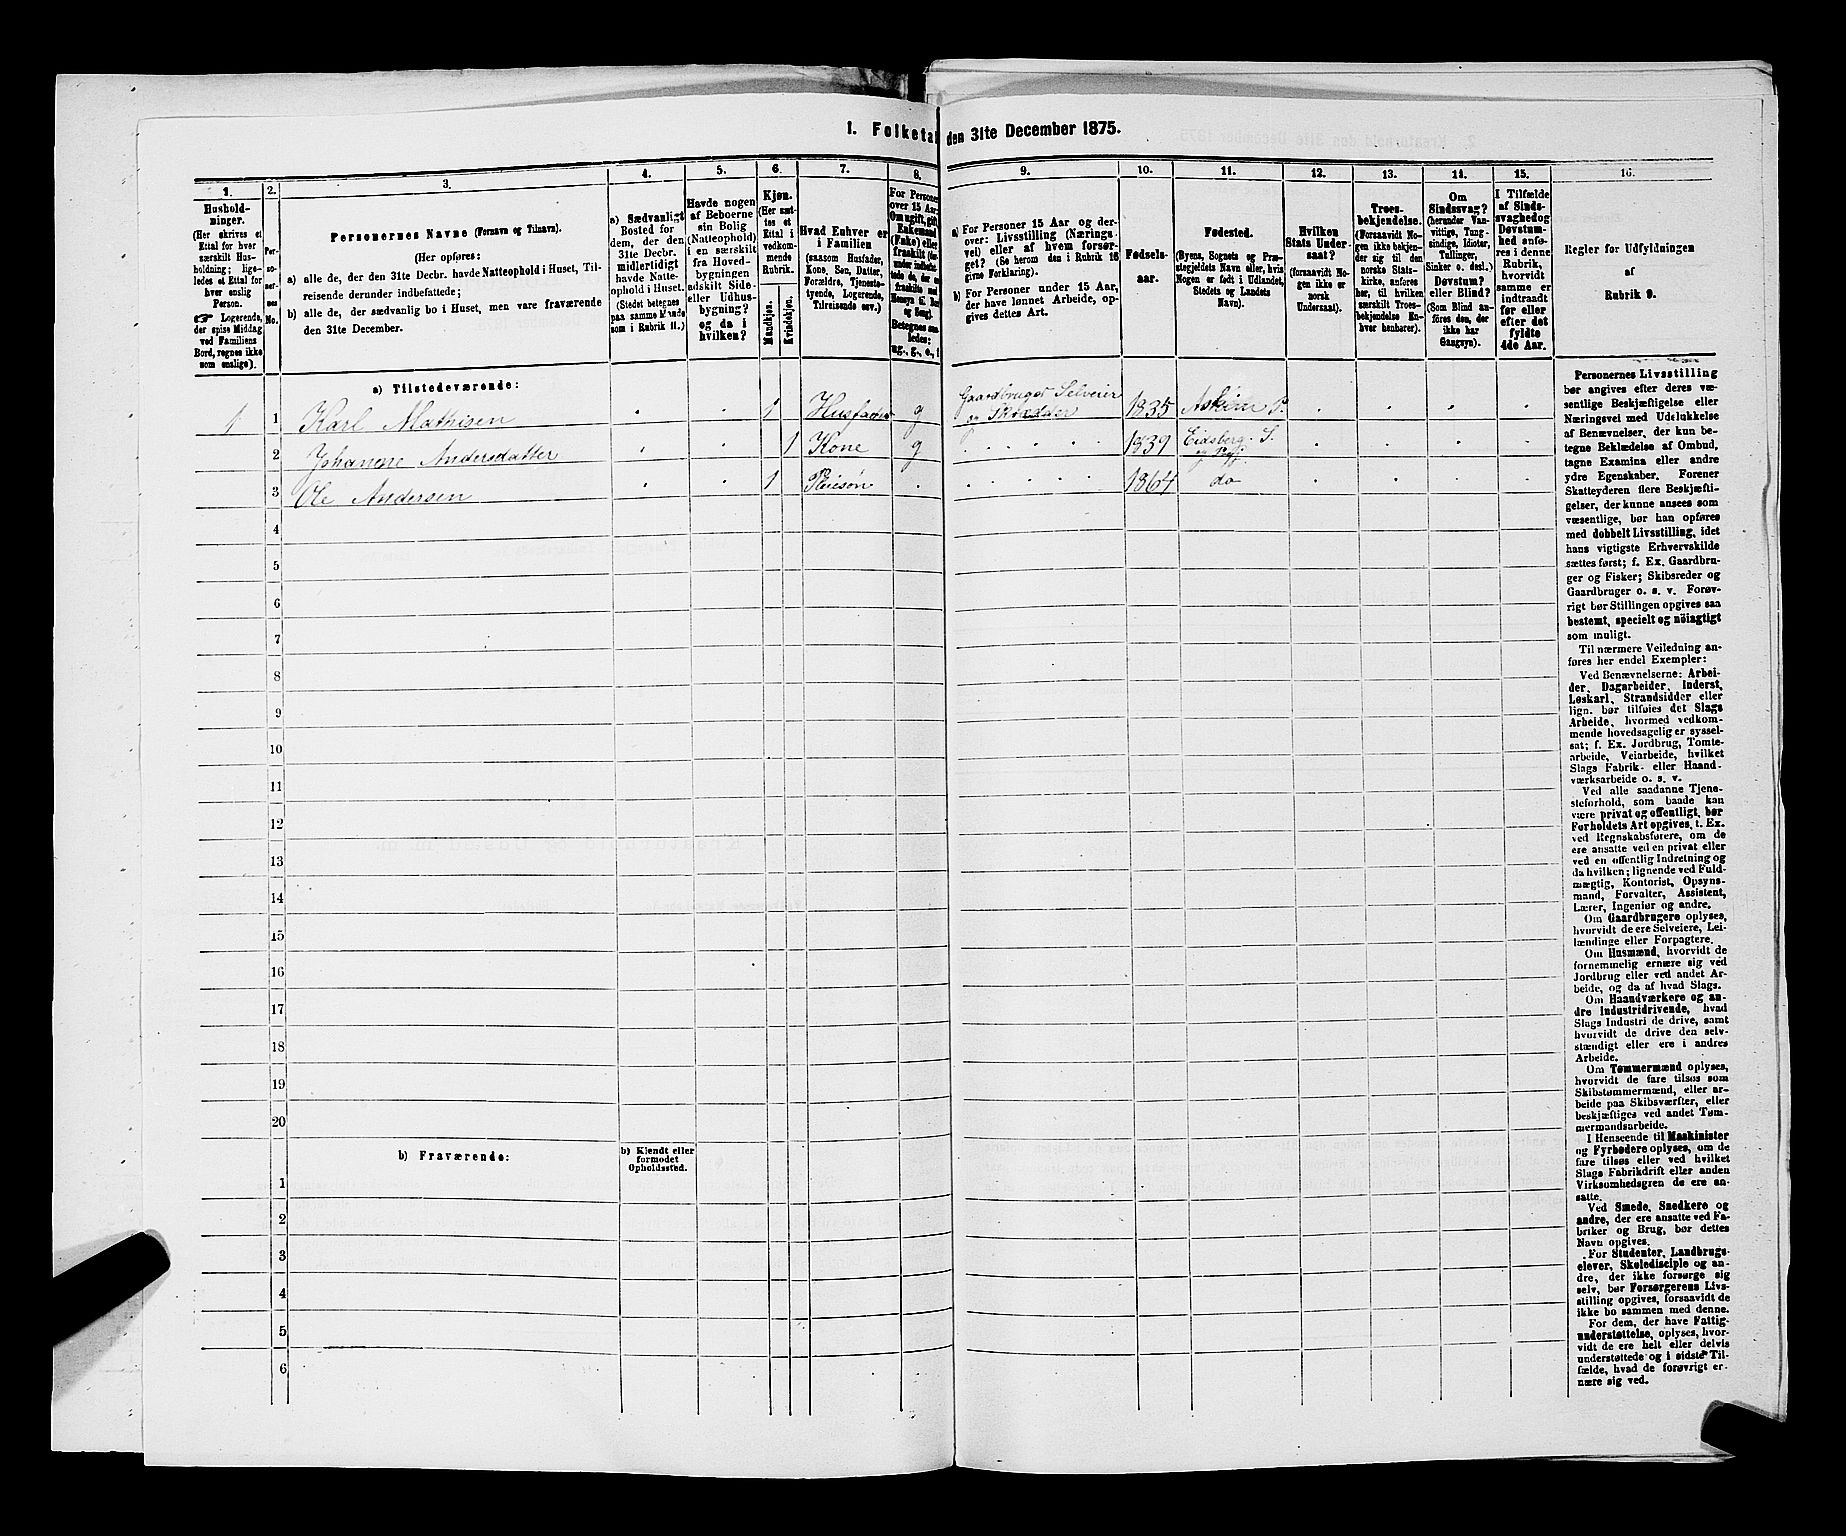 1. Folketal den 31te December 1875.
1.
Hushold-
ninger.
(Her skrives et
Ettal for hver
særskilt Hus-
holdning; lige-
ledes et Ettal for
hver enslig
Person.
☞ Logerende,
der spise Middag
ved Familiens
Bord, regnes ikke
som enslige).
2.
Per-
so-
ner-
nes
No.
3.
Personernes Navne (Fornavn og Tilnavn).
(Her opføres:
a) alle de, der den 31te Decbr. havde Natteophold i Huset, Til-
reisende derunder indbefattede;
b) alle de, der sædvanlig bo i Huset, men vare fraværende
den 31te December.
4.
a) Sædvanligt
Bosted for
dem, der den
31te Decbr.
midlertidigt
havde Natte-
ophold i Huset.
(Stedet betegnes
paa samme Maade
som i Rubrik 11.)
5.
Havde nogen
af Beboerne
sin Bolig
(Natteophold)
i en særskilt
fra Hoved-
bygningen
adskilt Side-
eller Udhus-
bygning?
og da i
hvilken?
6.
Kjøn.
(Her sæt-
tes et
Ettal i
vedkom-
mende
Rubrik.
Mandkjøn.
Kvindekjøn.
7.
Hvad Enhver er
i Familien
(saasom Husfader,
Kone, Søn, Datter,
Forældre, Tjeneste-
tyende, Logerende,
Tilreisende osv.)
8.
For Personer
over 15 Aar:
Om ugift, gift,
Enkemand
(Enke) eller
fraskilt
Betegnes saa-
ledes:
ug., g., e., f
9.
a) For Personer 15 Aar og der-
over: Livsstilling (Nærings-
vei) eller af hvem forsør-
get? (Se herom den i Rubrik 16
givne Forklaring).
b) For Personer under 15 Aar,
der have lønnet Arbeide, op-
gives dettes Art.
10.
Fødsels-
aar.
11.
Fødested.
(Byens, Sognets og Præ-
stegjeldets Navn eller, hvis
Nogen er født i Udlandet,
Stedets og Landets
Navn).
12.
Hvilken
Stats Under-
saat?
(forsaavidt No-
gen ikke er
norsk
Undersaat).
13.
Troes-
bekjendelse.
(Forsaavidt No-
gen ikke bekjen-
der sig til den
norske Stats-
kirke, anføres
her, til hvilken
særskilt Troes-
bekjendelse En-
hver henhører).
14.
Om
Sindssvag?
(herunder Van-
vittige, Tung-
sindige, Idioter,
Tullinger,
Sinker o. desl.)
Døvstum?
eller Blind?
(Som Blind an-
føres den, der
ikke har
Gangsyn).
15.
I Tilfælde
af Sinds-
svaghed og
Døvstum-
hed anfø-
res i denne
Rubrik,
hvorvidt
samme er
indtraadt
før eller
efter det
fyldte
4de Aar.
16.
Regler for Udfyldningen
af
Rubrik 9.
a) Tilstedeværende:
1 1 Karl Mathisen 1 Husfader g Gaardbruger Selveier
og Skrædder 1835 Askim P.
2 Johanne Andersdatter 1 Kone g 1839 Eidsberg S.
og Pgj.
3 Ole Andersen 1 Pleiesøn 1864 do
4
5
6
7
8
9
10
11
12
13
14
15
16
17
18
19
20
b) Fraværende:
b) Kjendt eller
formodet
Opholdssted.
1
2
3
4
5
6
Personernes Livsstilling
bør angives efter deres væ-
sentlige Beskjæftigelse eller
Næringsvei med Udelukkelse
af Benævnelser, der kun be-
tegne Beklædelse af Ombud,
tagne Examina eller andre
ydre Egenskaber. Forener
Skatteyderen flere Beskjæfti-
gelser, der kunne ansees som
væsentlige, bør han opføres
med dobbelt Livsstilling, idet
hans vigtigste Erhvervskilde
sættes først; f. Ex. Gaardbru-
ger og Fisker; Skibsreder og
Gaardbruger o. s. v. Forøv-
rigt bør Stillingen opgives saa
bestemt, specielt og nöiagtigt
som muligt.
Til nærmere Veiledning an-
føres her endel Exempler:
Ved Benævnelserne: Arbei-
der, Dagarbeider, Inderst,
Løskarl, Strandsidder eller
lign. bør tilføies det Slags
Arbeide, hvormed vedkom-
mende hovedsagelig er syssel-
sat; f. Ex. Jordbrug, Tomte-
arbeide, Veiarbeide, hvilket
Slags Fabrik- eller Haand-
værksarbeide o. s. v.
Ved alle saadanne Tjene-
steforhold, som baade kan
være privat og offentligt, bør
Forholdets Art opgives, t. Ex.
ved Regnskabsførere, om de
ere ansatte ved en privat eller
ved en offentlig Indretning og
da hvilken; lignende ved Fuld-
mægtig, Kontorist, Opsyns-
mand, Forvalter, Assistent,
Lærer, Ingeniør og andre.
Om Gaardbrugere oplyses,
hvorvidt de ere Selveiere, Lei-
lændinge eller Forpagtere.
Om Husmænd, hvorvidt de
fornemmelig ernære sig ved
Jordbrug eller ved andet Ar-
beide, og da af hvad Slags.
Om Haandværkere og an-
dre Industridrivende, hvad
Slags Industri de drive, samt
hvorvidt de drive den selv-
stændigt eller ere i andres
Arbeide.
Om Tømmermænd oplyses,
hvorvidt de fare tilsøs som
Skibstømmermænd, eller ar-
beide paa Skibsværfter, eller
beskjæftiges ved andet Tøm-
mermandsarbeide.
I Henseende til Maskinister
og Fyrbødere oplyses, om de
fare tilsøs eller ved hvilket
Slags Fabrikdrift eller anden
Virksomhedsgren de ere an-
satte.
Ved Smede, Snedkere og
andre, der ere ansatte ved Fa-
briker og Brug, bør dettes
Navn opgives.
For Studenter, Landbrugs-
elever, Skoledisciple og an-
dre, der ikke forsørge sig
selv, bør Forsørgerens Livs-
stilling opgives, forsaavidt de
ikke bo sammen med denne.
For dem, der have Fattig-
understøttelse, oplyses, hvor-
vidt de ere helt eller delvis
understøttede og i sidste Til-
fælde, hvad de forøvrigt er-
nære sig ved.